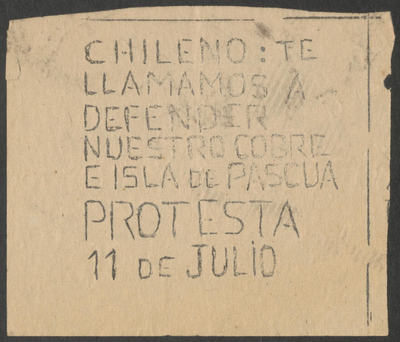 CHILENO: TE
LLAMAMOS A
DEFENDER
NUESTRO COBRE
E ISLA DE PASCUA
PROTESTA
11 DE JULIO